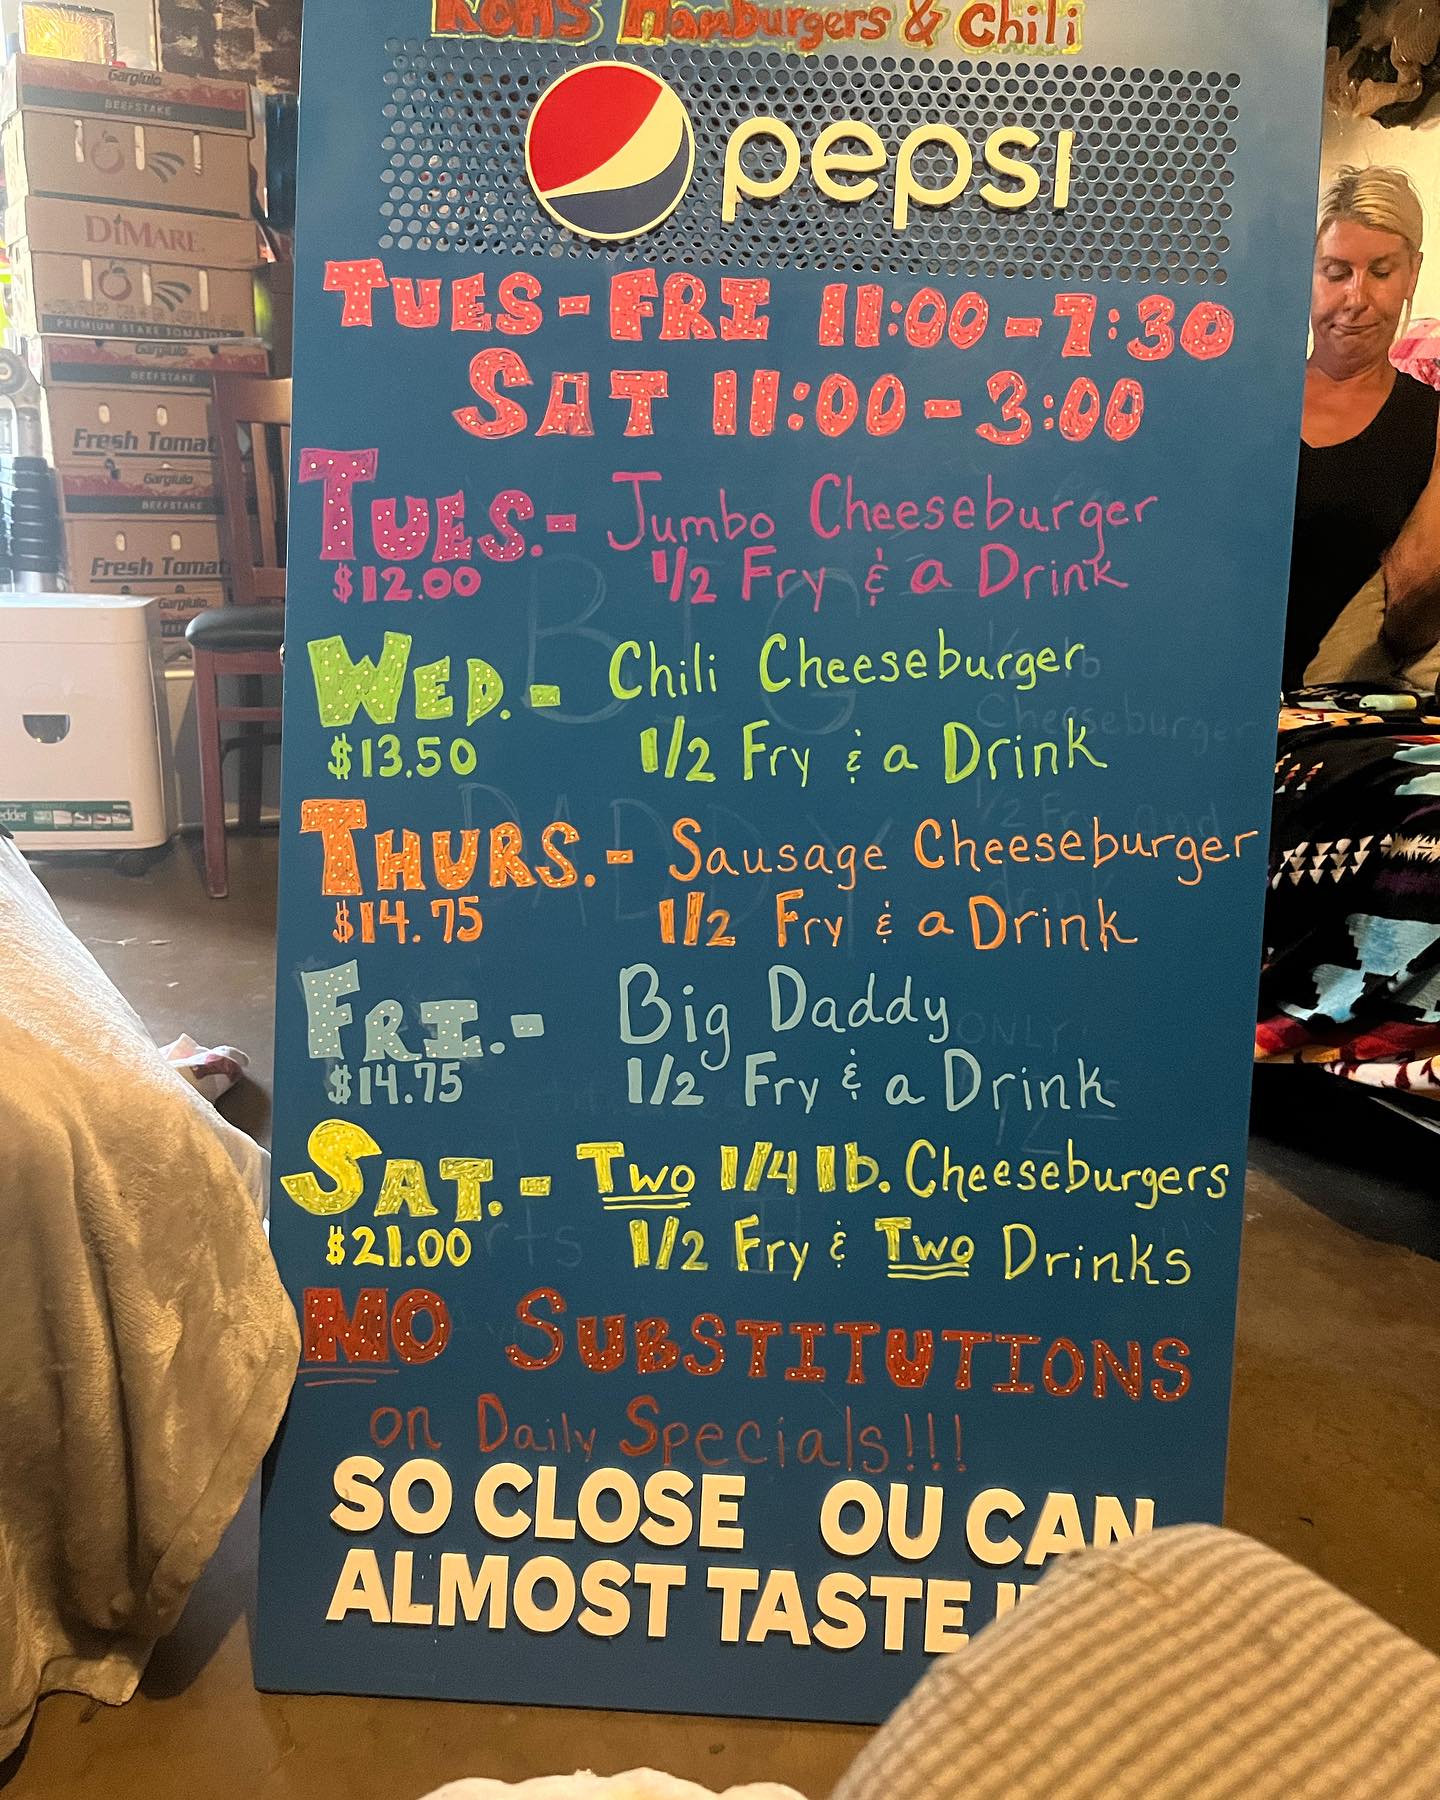 Rons Hamburgers & Chili
pepsi
TUES-FRI 11:00-7:30
SAT 11:00-3:00
TUES.- Jumbo Cheeseburger
$12.00 1/2 Fry & a Drink
WED.- Chili Cheeseburger
$13.50 1/2 Fry & a Drink
THURS.- Sausage Cheeseburger
$14.75 1/2 Fry & a Drink
FRI.- Big Daddy
$14.75 1/2 Fry & a Drink
SAT.- Two 1/4 lb. Cheeseburgers
$21.00 1/2 Fry & Two Drinks
NO SUBSTITUTIONS
on Daily Specials!!!
SO CLOSE OU CAN
ALMOST TASTE
Gargiulo
BEEFSTAKE
DiMARE
PREMIUM STAKE TOMATOES
Gargiulo
BEEFSTAKE
Fresh Tomat
Gargiulo
BEEFSTAKE
Fresh Tomat
Gargiulo
BIG
DADDY
Cheeseburger
1/2 Fry and
drink
ONLY
12